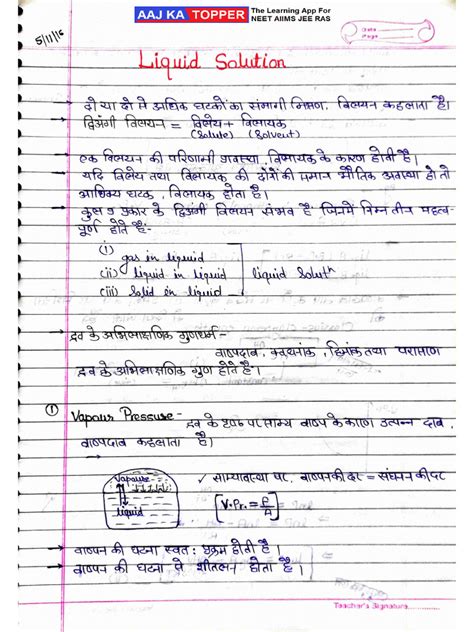 AAJ KA TOPPER The Learning App For
NEET AIIMS JEE RAS
5/11/16
Date
Page
Liquid Solution
→ दो या दो से अधिक घटकों का समांगी मिश्रण, विलयन कहलाता है।
→ द्विअंगी विलयन = विलेय + विलायक
(Solute) (Solvent)
एक विलयन की परिणामी अवस्था, विलायक के कारण होती है।
यदि विलेय तथा विलायक की दोनों की समान भौतिक अवस्था हो तो
आधिक्य घटक, विलायक होता है।
→ कुल 9 प्रकार के द्विअंगी विलयन संभव हैं जिनमें निम्न तीन महत्व-
पूर्ण होते हैं-
(i) gas in liquid
(ii) liquid in liquid liquid Solutn
(iii) Solid in liquid
→ द्रव के अभिलाक्षणिक गुणधर्म -
वाष्पदाब, क्वथनांक, हिमांक तथा परासरण
द्रव के अभिलाक्षणिक गुण होते हैं।
① Vapour Pressure - द्रव के पृष्ठ पर साम्य वाष्प के कारण उत्पन्न दाब,
वाष्पदाब कहलाता है।
Vapour
liquid
✓ साम्यावस्था पर, वाष्पन की दर = संघनन की दर
[V.Pr. = F/A]
→ वाष्पन की घटना स्वत: प्रक्रम होती है।
→ वाष्पन की घटना से शीतलन होता है।
Teacher's Signature